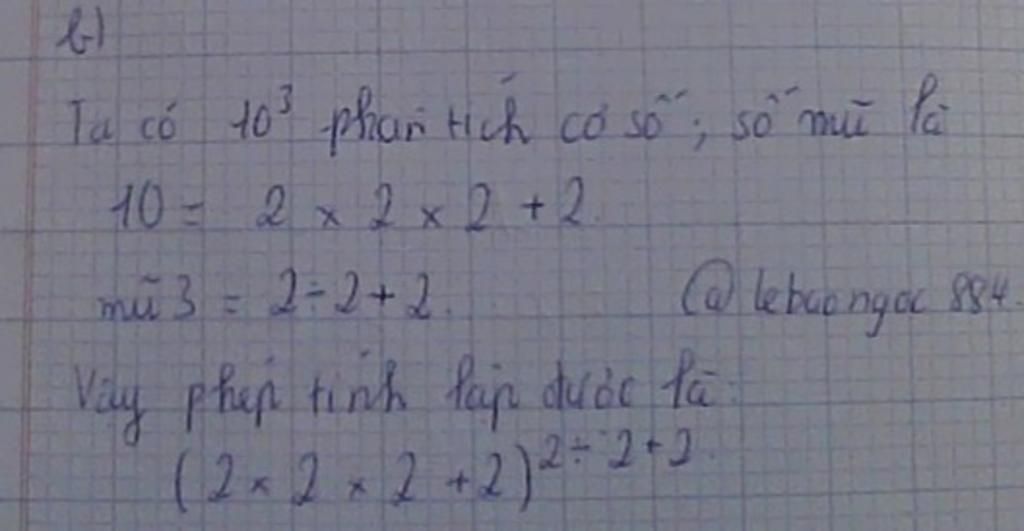 b)
Ta có 10³ phân tích cơ số, số mũ là
10 = 2 × 2 × 2 + 2.
mũ 3 = 2 ÷ 2 + 2. @lebaongoc884.
Vậy phép tính lập được là
(2 × 2 × 2 + 2)^2 ÷ 2 + 2.